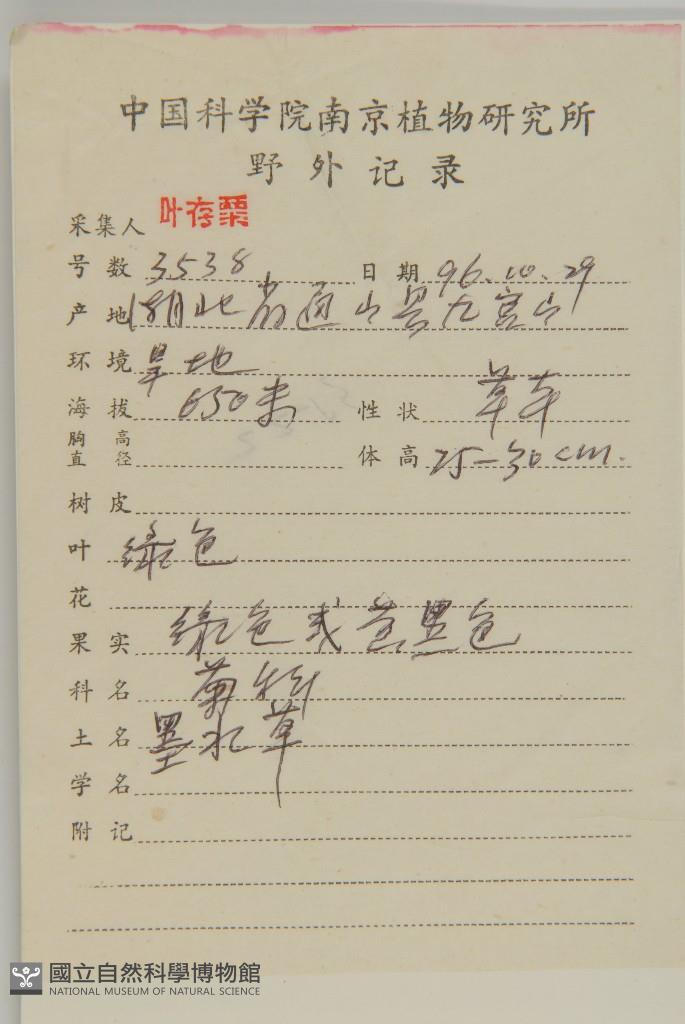 中国科学院南京植物研究所
野外记录
采集人 叶存粟
号数 3538 日期 96.10.29
产地 湖北省通山县九宫山
环境 旱地
海拔 650米 性状 草本
胸高直径 体高 25-30cm.
树皮
叶 绿色
花
果实 绿色或 黑色
科名 菊科
土名 墨水草
学名
附记
國立自然科學博物館
NATIONAL MUSEUM OF NATURAL SCIENCE